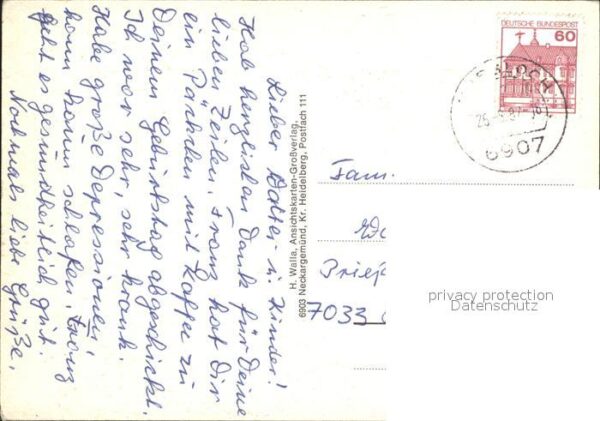 Lieber Walter u. Kinder!
Hab herzlichen Dank für Deine
lieben Zeilen. Franz hat Dir
ein Päckchen mit Kaffee zu
Deinem Geburtstag abgeschickt.
Ich war sehr, sehr krank.
Habe große Depressionen
kann kaum schlafen. Franz
geht es gesundheitlich gut.
Nochmals liebe Grüße.
H. Walla, Ansichtskarten-Großverlag,
6903 Neckargemünd, Kr. Heidelberg, Postfach 111
DEUTSCHE BUNDESPOST
60
6907
Fam.
7033
privacy protection
Datenschutz